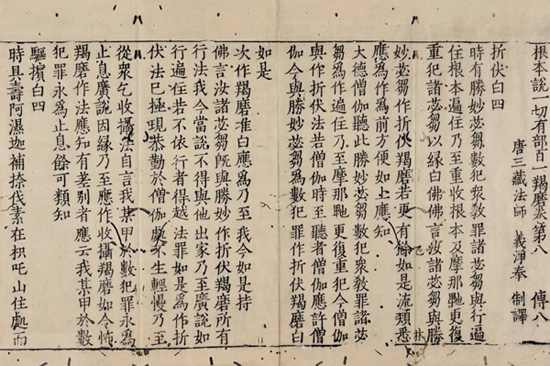 根本說一切有部百一羯磨卷第八 傅八
唐三藏法師 義淨奉 制譯
折伏白四
時有勝妙苾芻數犯眾教罪諸苾芻與行遍
住根本遍住乃至重收根本及摩那䭾更復
重犯諸苾芻以緣白佛佛言汝諸苾芻與勝
妙苾芻作折伏羯磨若更有餘如是流類悉
應為作為前方便如上應知
大德僧伽聽此勝妙苾芻數犯眾教罪諸苾
芻為作遍住乃至摩那䭾更復重犯今僧伽
與作折伏法若僧伽時至聽者僧伽應許僧
伽今與勝妙苾芻數犯眾教罪作折伏羯磨白
如是
次作羯磨准白應為乃至我今如是持
佛言汝諸苾芻既與勝妙作折伏羯磨所有
行法我今當說不得與他出家乃至廣說如
行遍住若不依行者得越法罪如是為作折
伏法已極現恭勤於僧伽處不生輕慢乃至
從眾乞收攝法自言我某甲於數犯罪永為
止息廣說因緣乃至應作收攝羯磨如令怖
羯磨作法應知有差別者應云我某甲於數
犯罪永為止息餘可類知
驅擯白四
時具壽阿濕迦補捺伐素在枳吒山住處而